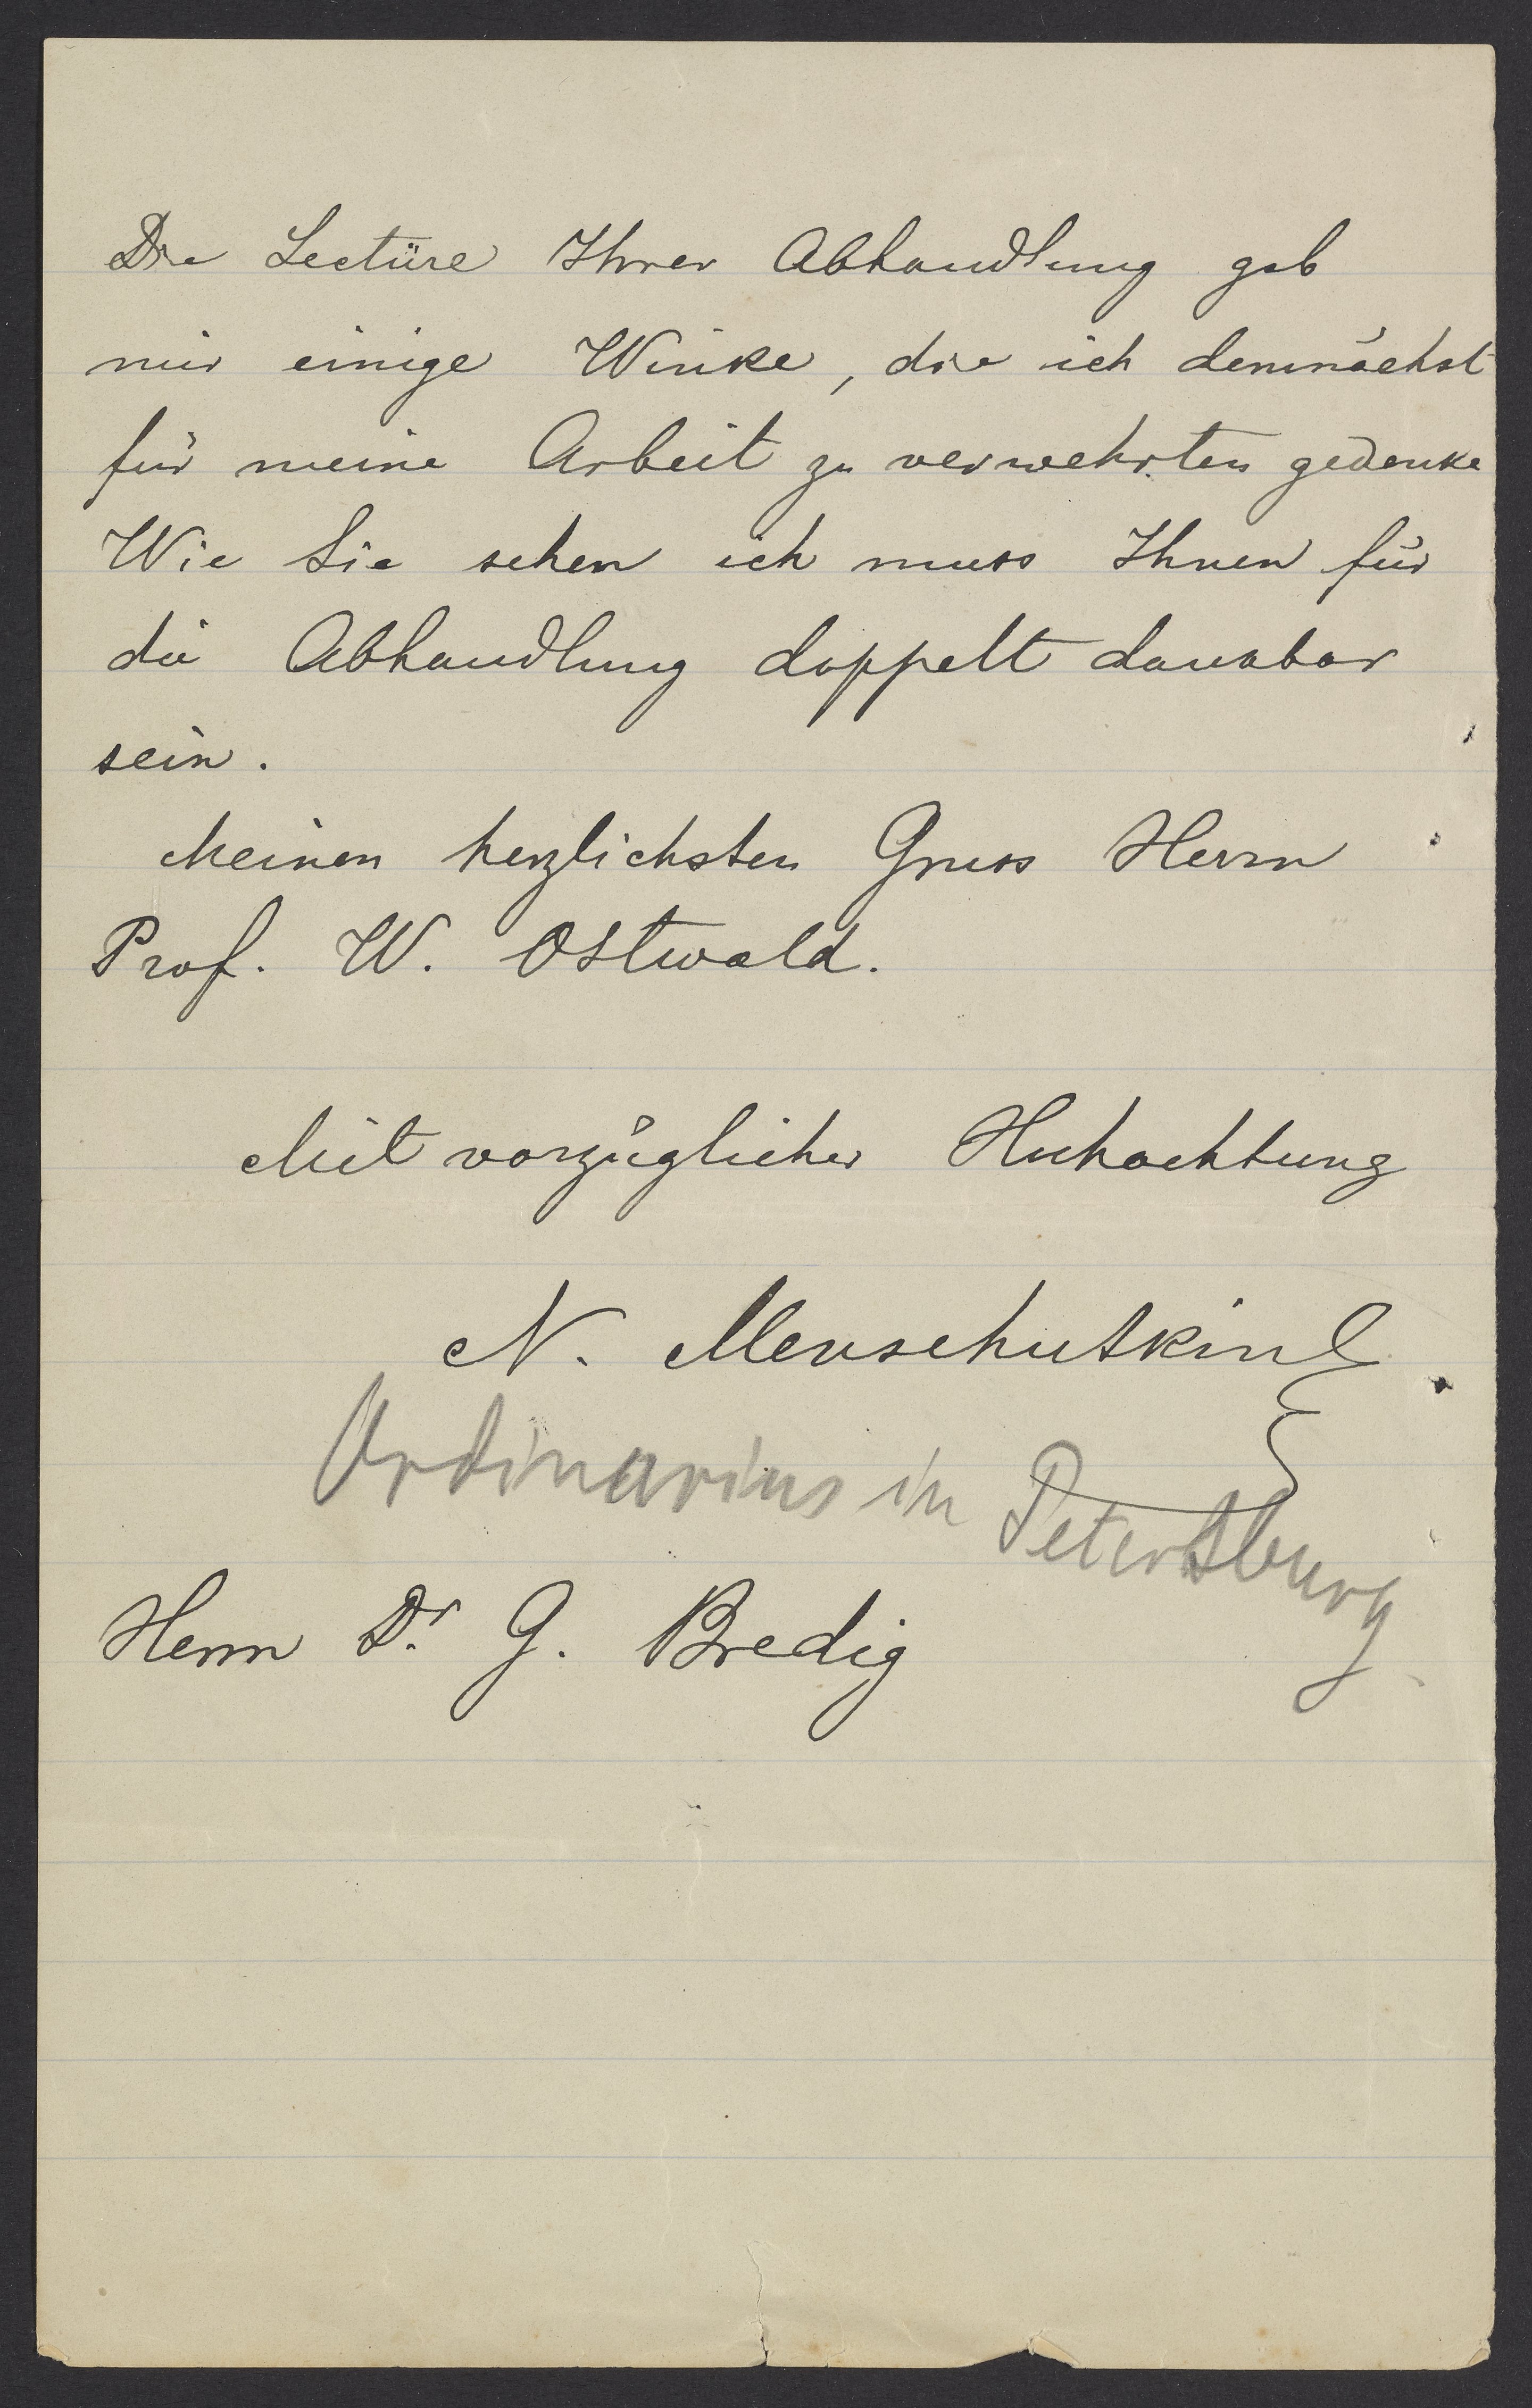 Die Lectüre Ihrer Abhandlung gab
mir einige Winke, die ich demnächst
für meine Arbeit zu verwehrten gedenke
Wie Sie sehen ich muss Ihnen für
die Abhandlung doppelt dankbar
sein.
Meinen herzlichsten Gruss Herrn
Prof. W. Ostwald.
Mit vorzüglicher Hochachtung
N. Menschutkin
Ordinarius in Petersburg
Herrn Dr G. Bredig